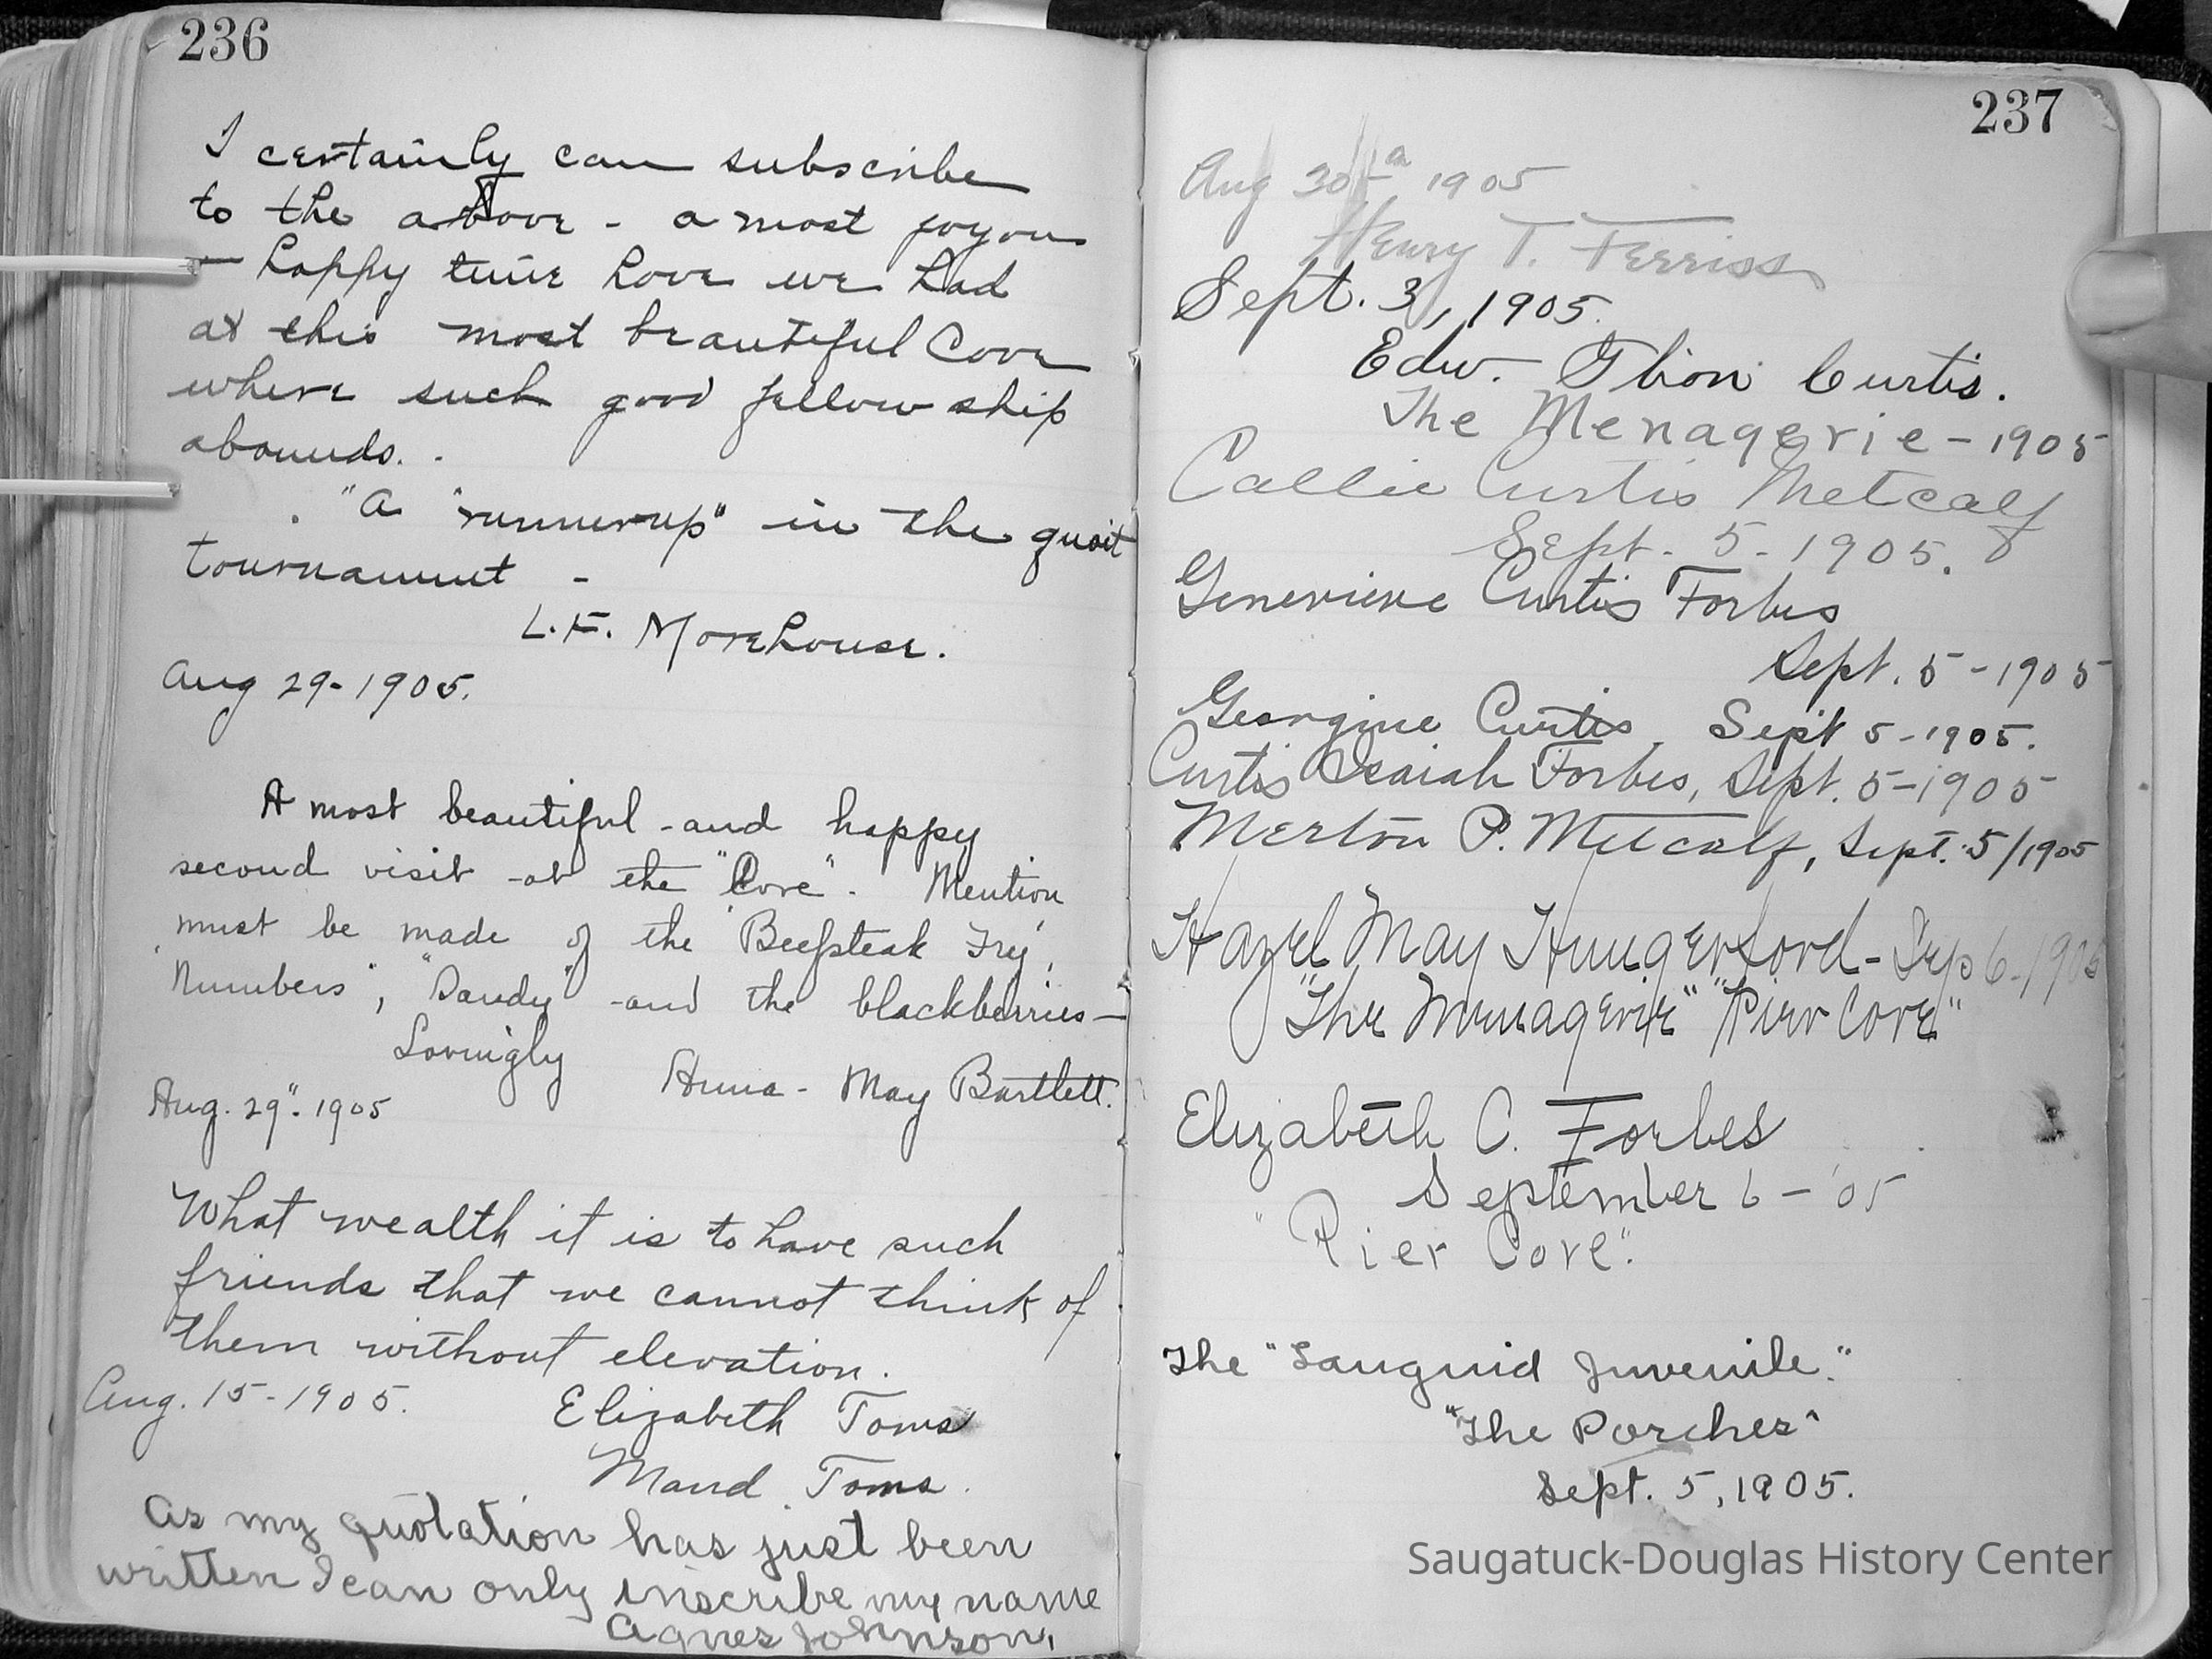 236
I certainly can subscribe
to the above - a most joyous
- happy time have we had
at this most beautiful Cove
where such good fellowship
abounds. -
"A "runnerup" in the quoit
tournament -
L. F. Morehouse.
Aug 29-1905.
A most beautiful and happy
second visit at the "Cove". Mention
must be made of the "Beefsteak Fry",
"Numbers", "Dandy" and the blackberries—
Lovingly Anna-May Bartlett.
Aug. 29". 1905
What wealth it is to have such
friends that we cannot think of
them without elevation.
Aug. 15-1905.
Elizabeth Toms
Maud Toms.
As my quotation has just been
written I can only inscribe my name
Agnes Johnson.
237
Aug 30 1905
Henry T. Ferriss
Sept. 3, 1905.
Edw. Curtis.
The Menagerie - 1905
Callie Curtis Metcalf
Sept. 5 - 1905.
Genevieve Curtis Forbes
Sept. 5 - 1905
Georgine Curtis, Sept 5-1905.
Curtis Isaiah Forbes, Sept. 5-1905
Merton P. Metcalf, Sept. 5/1905
Hazel May Hungerford - Sep 6-1905
"The Menagerie" "Pier Cove"
Elizabeth C. Forbes
September 6 - '05
"Pier Cove".
The "Languid Juvenile."
"The Porches"
Sept. 5, 1905.
Saugatuck-Douglas History Center